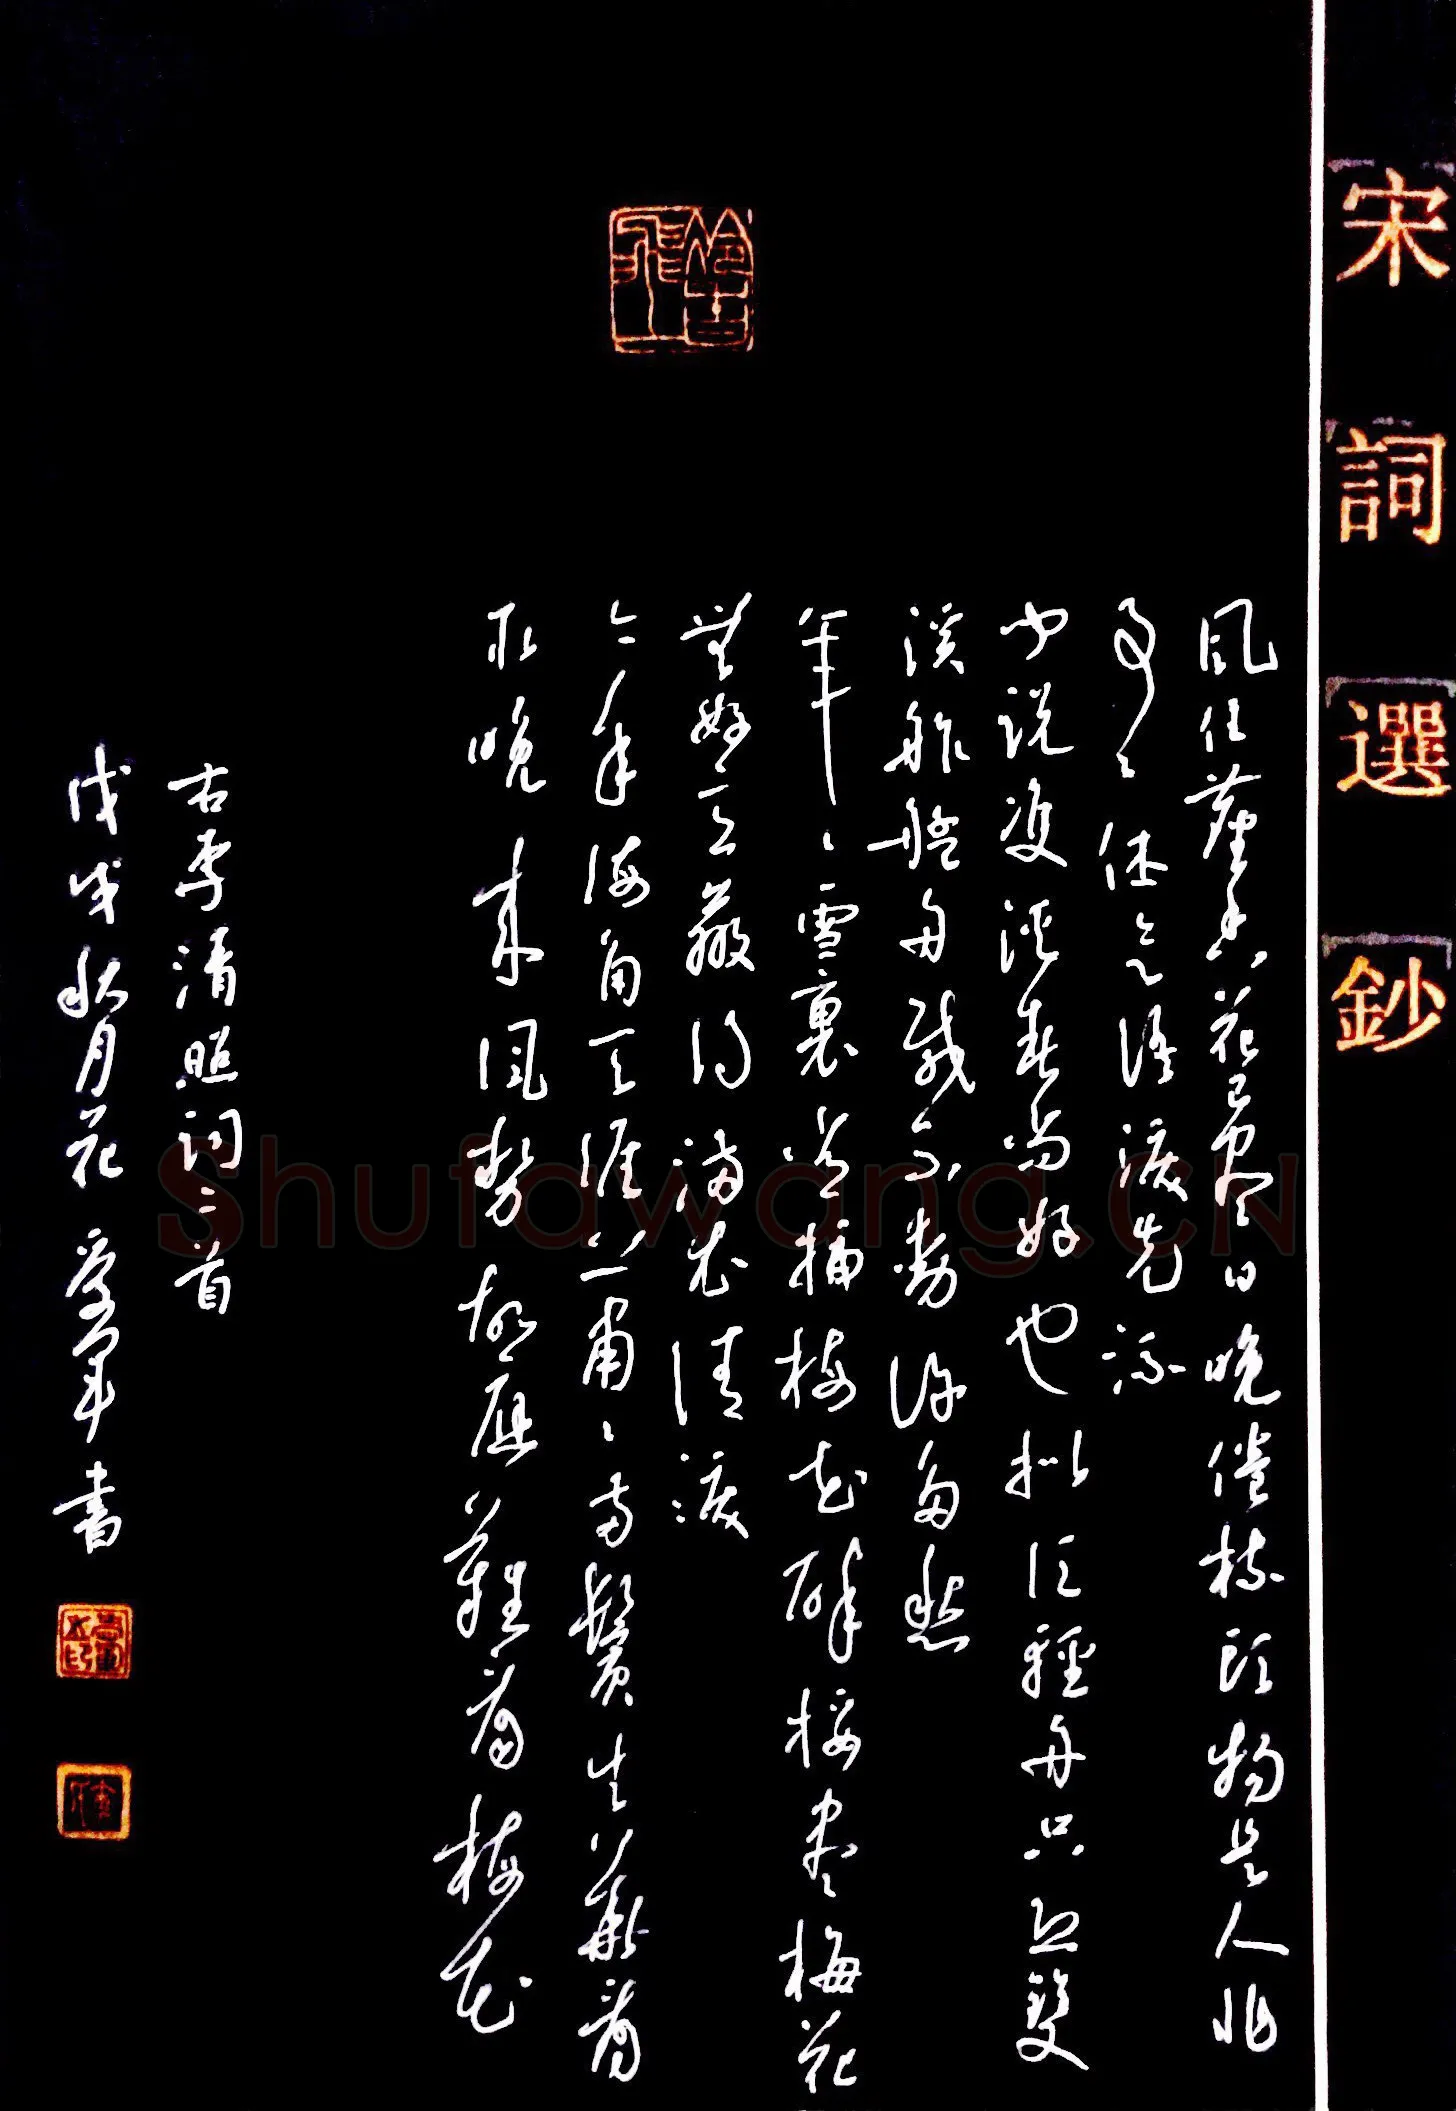 宋詞選鈔
風住塵香花已盡日晚倦梳頭物是人非
事〻休欲語淚先流
聞說雙溪春尚好也擬泛輕舟只恐雙
溪舴艋舟載不動許多愁
年〻雪裏常插梅花醉挼盡梅花
無好意贏得滿衣清淚
今年海角天涯蕭〻兩鬢生華看
取晚來風勢故應難看梅花
右李清照詞二首
戊戌秋月 軍書
Shufawang.CN